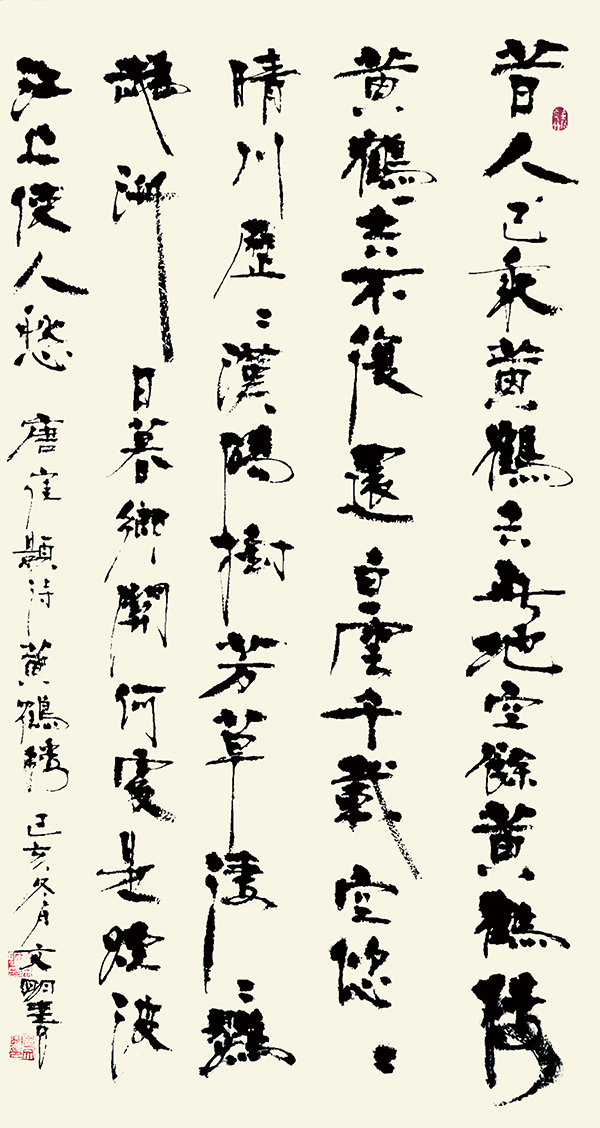 昔人已乘黄鶴去此地空餘黄鶴樓
黄鶴一去不復還白雲千載空悠〻
晴川歷〻漢陽樹芳草淒〻鸚
鵡洲日暮鄉關何處是煙波
江上使人愁 唐崔顥詩黄鶴樓 己亥冬月文明書